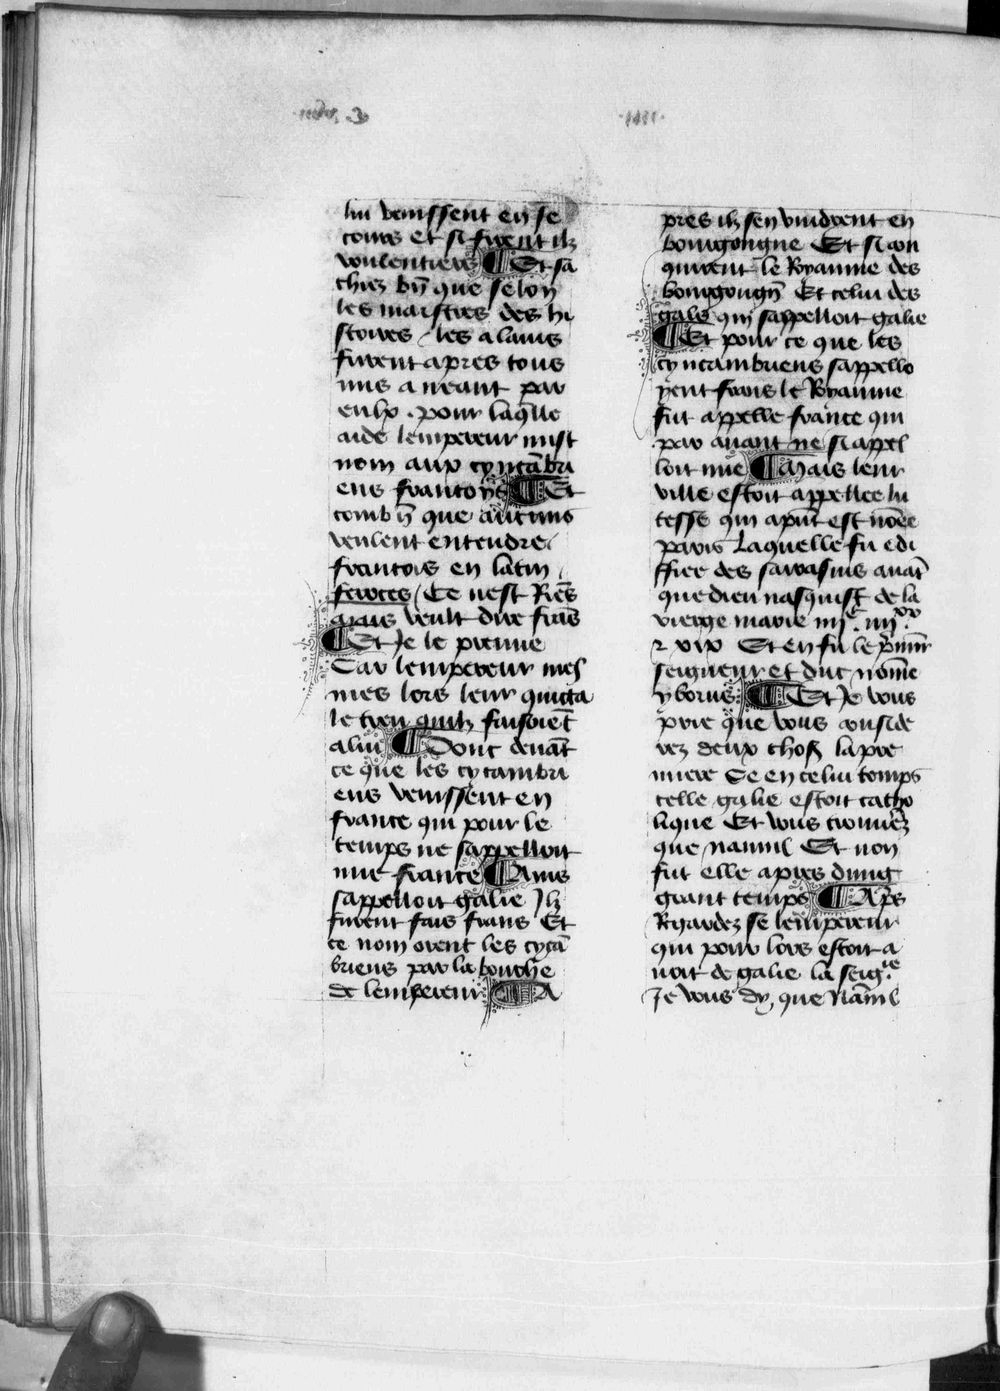 lui venissent en se
cours et si firent ilz
voulentiers ¶ Et sa
chiez bn̄ que selon
les maistres des hi
stoires / les alains
furent apres tous
mis a neant par
eulx . pour laq̄lle
aide lempereur mist
nom aux cyncābri
ens francoys ¶ Et
combn̄ que aucuns
veulent entendre
francois en latin
feroces / Ce nest Riēs
mais veult dire frās
¶ Et Je le preuue
Car lempereur mes
mes lors leur quicta
le treu quilz faisoiēt
a lui ¶ Donc deuāt
ce que les cycambri
ens venissent en
france qui pour le
temps ne sappelloit
mie france ¶ Ains
sappelloit galie Ilz
furent fais frans Et
ce nom orent les cycā
briens par la bouche
de lempereur ¶ A
.iiii.
pres ilz sen vindrent en
bourgongne Et si con
quirent le Royaume des
bourgougn̄ Et celui des
gals qui sappelloit galie
¶ Et pour ce que les
cyncambriens sappello
yent frans le Royaume
fut appelle france qui
par auant ne si apel
loit mie ¶ Mais leur
ville estoit appellee lu
tesse qui aput̄ est nōee
paris Laquelle fu edi
ffiee des sarasins auāt
que dieu nasquist de la
vierge marie iiiiᶜ. iiiiˣˣ.
⁊ xix Et en fu le p̄mir̄
seigneur et duc nōme
yborus ¶ Et Je vous
prie que vous conside
rez deux chos̄ la pre
miere Se en celui temps
celle galie estoit catho
lique Et vous trouuēz
que nannil Et non
fut elle apres dung
grant temps ¶ Ap̄s
Rgardez se lempereur
qui pour lors estoit a
uoit de galie la seig.ⁱᵉ
Je vous dy, que Nām̄l